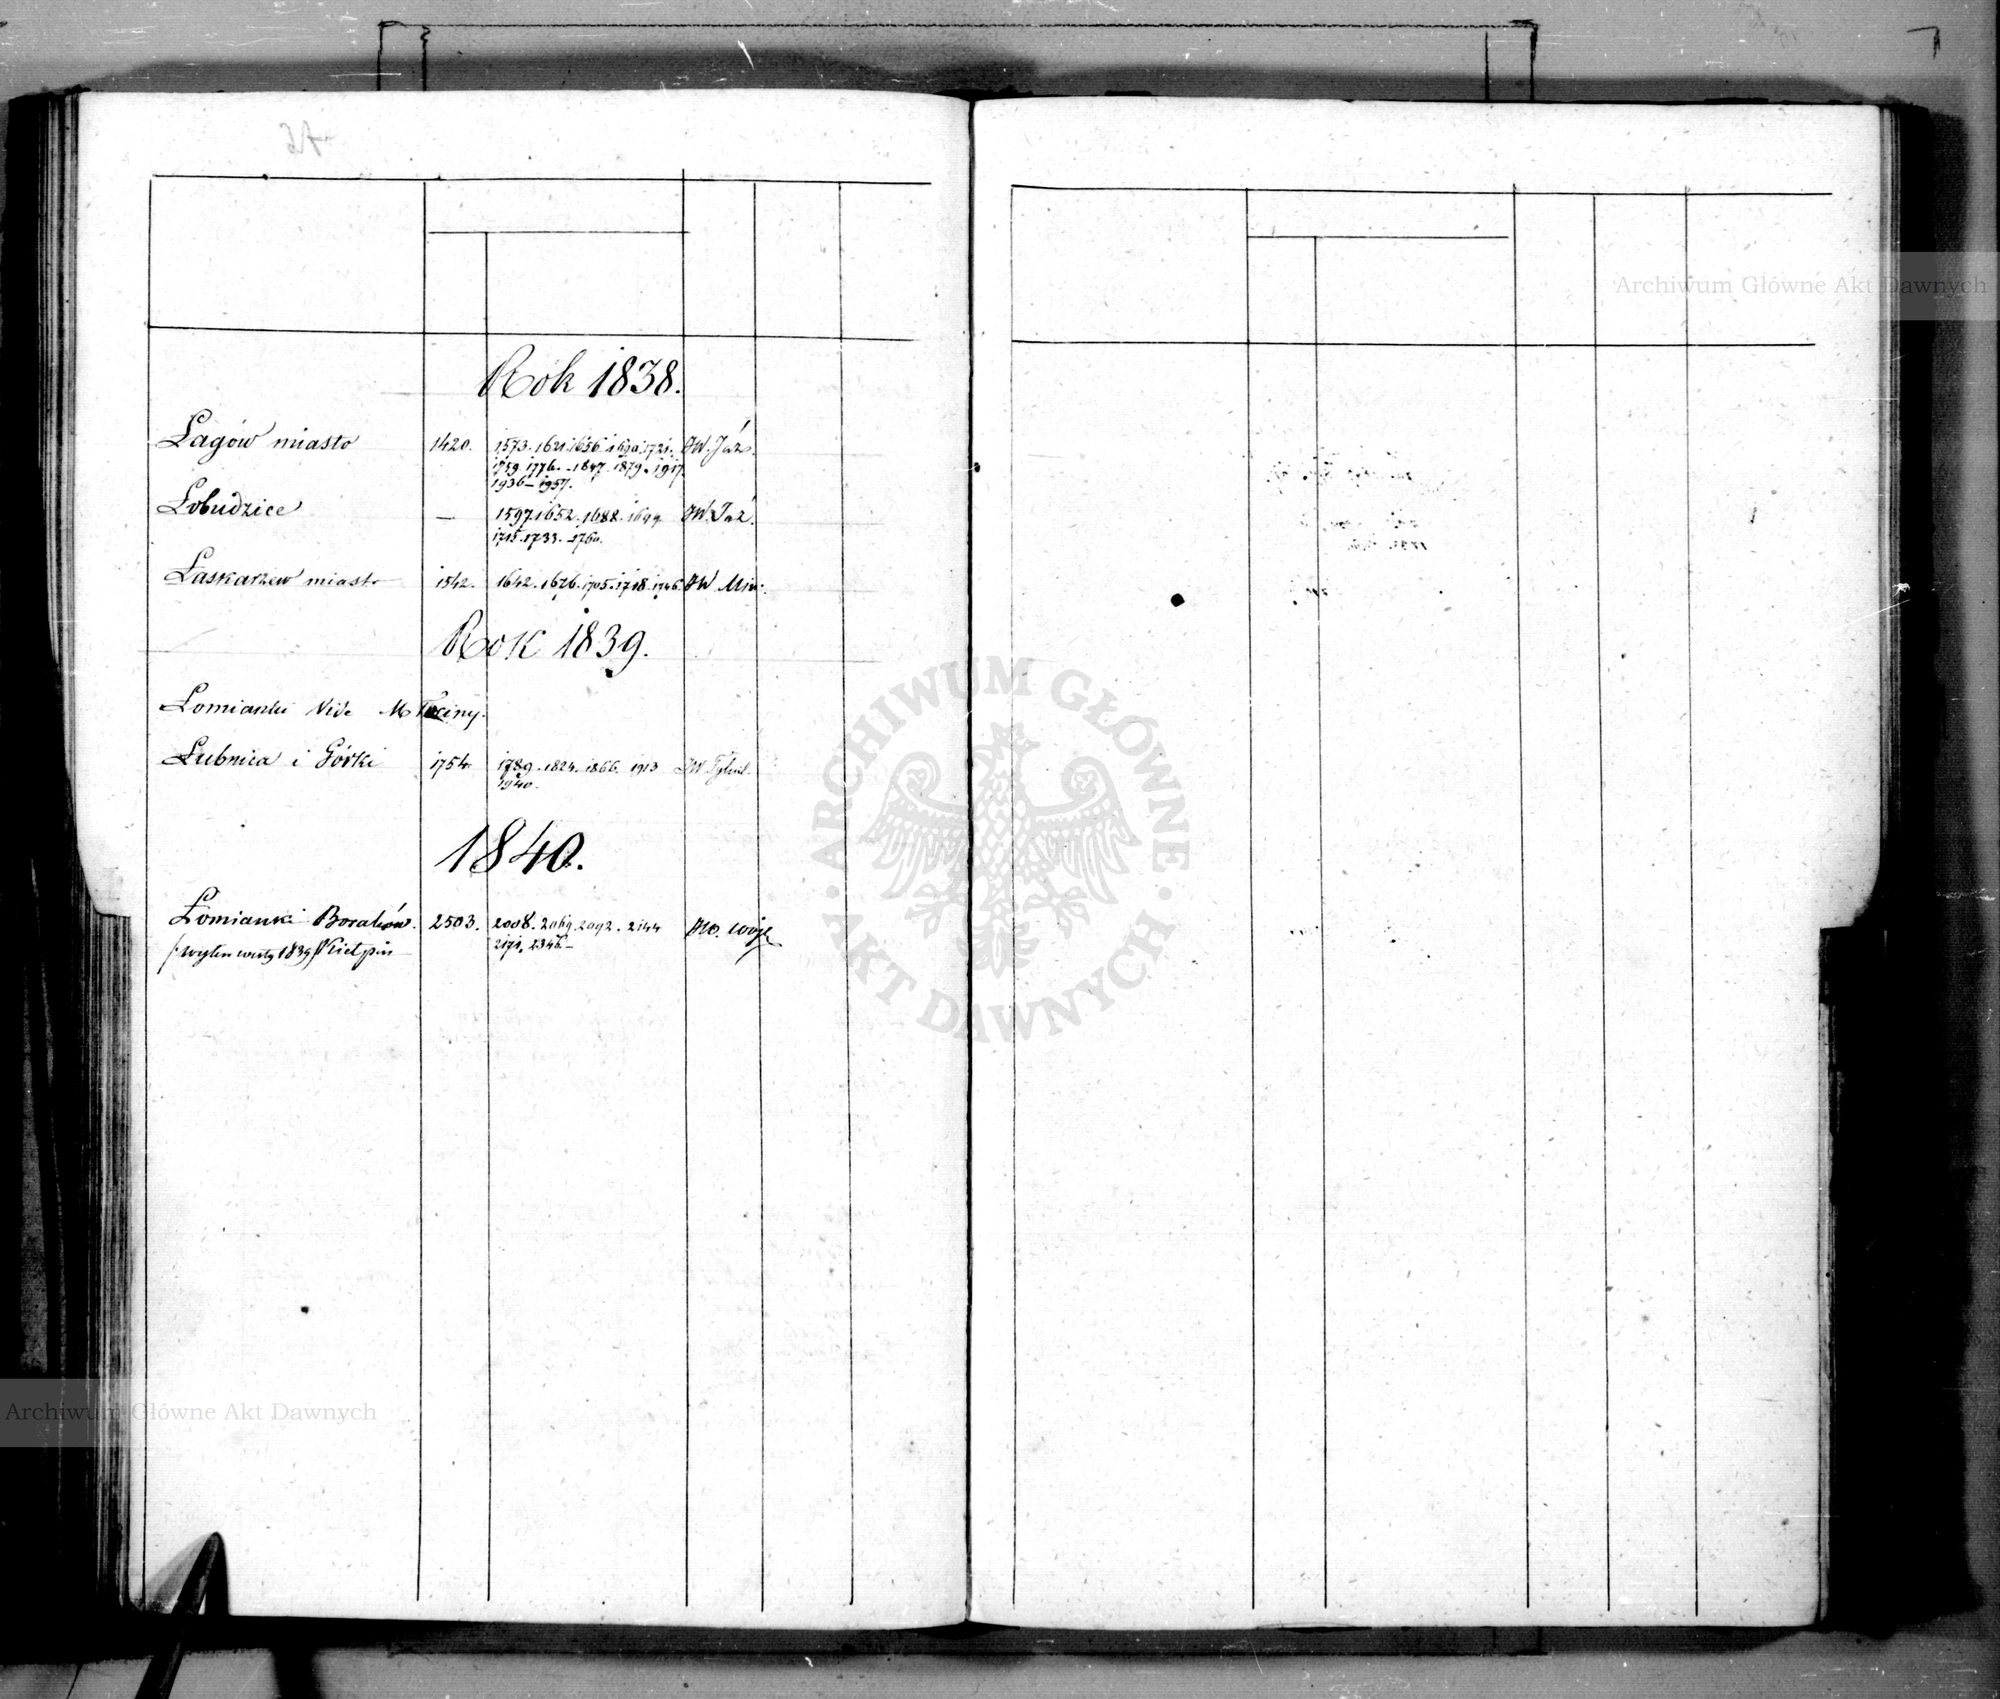 Rok 1838.
Łagów miasto 1420. 1573. 1621. 1656. 1690. 1721. JW. Jaz.
1759. 1776. 1847. 1879. 1917.
1936 — 1957.
Łobudzice — 1597. 1652. 1688. 1699 JW. Jaz.
1715. 1733. 1760.
Łaskarzew miasto 1542. 1642. 1676. 1705. 1718. 1746. JW
Rok 1839.
Łomianki Vide Młociny.
Łubnica i Górki 1754. 1789. 1824. 1866. 1913
1940.
1840.
Łomianki 2503. 2008. 2069. 2092. 2144
1839 Kiełpin 2171. 2346. —
Archiwum Główne Akt Dawnych
ARCHIWUM GŁÓWNE AKT DAWNYCH
Archiwum Główne Akt Dawnych